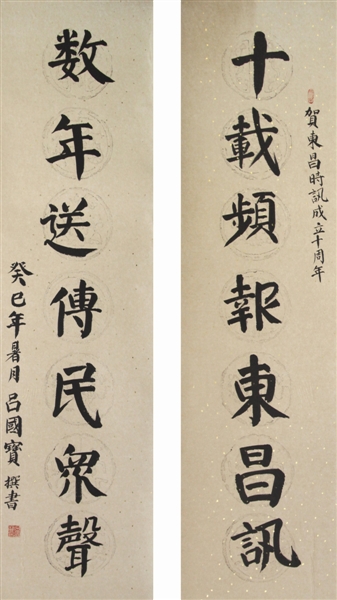 賀東昌時訊成立十周年
十載頻報東昌訊
数年送傳民眾聲
癸巳年暑月吕國寳撰書